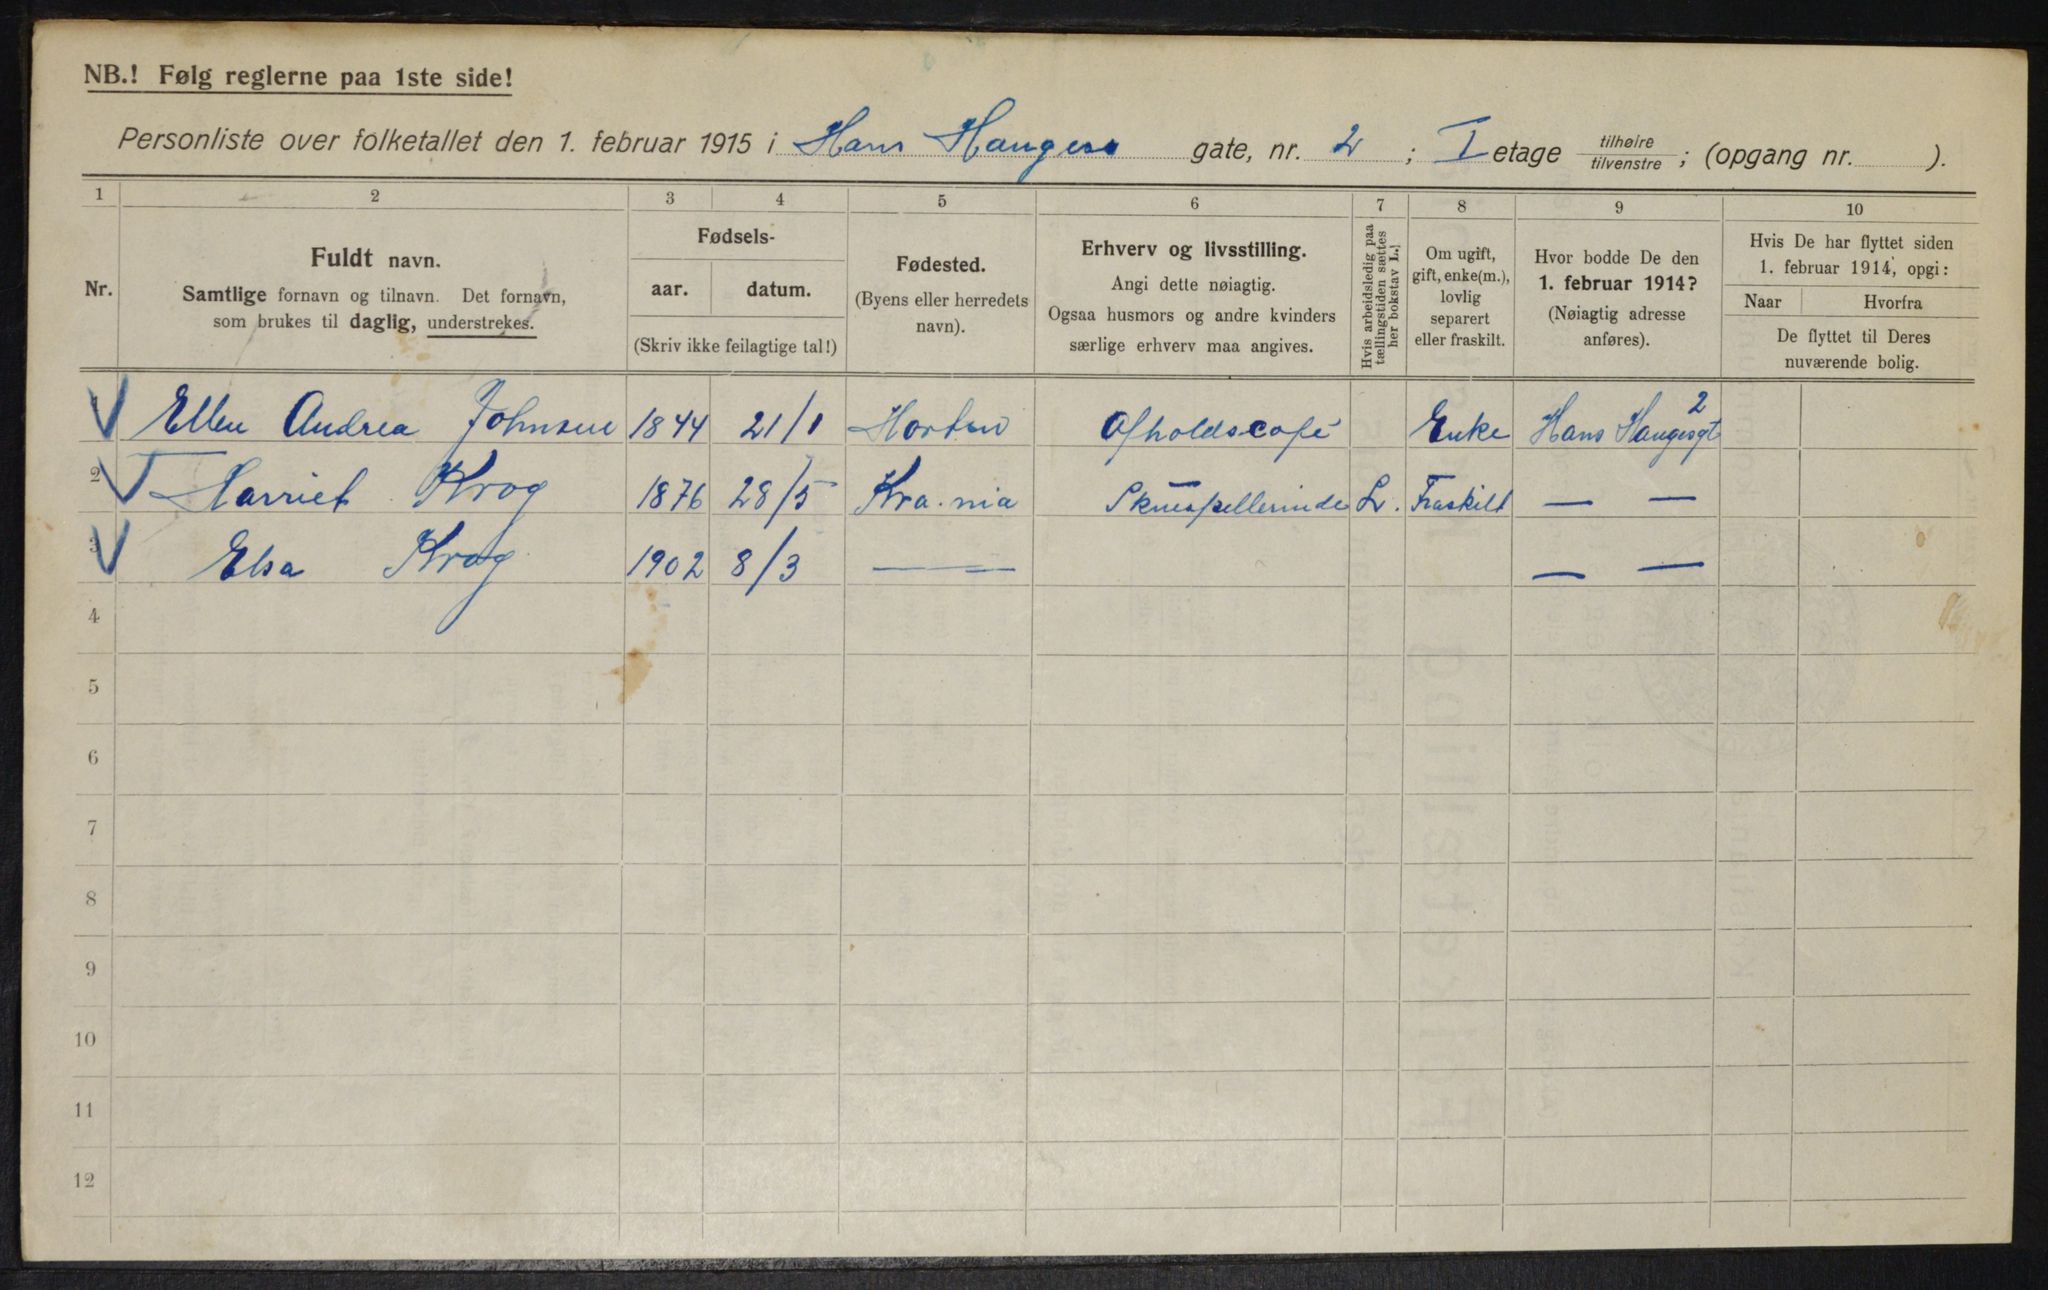 NB.! Følg reglerne paa 1ste side!
Personliste over folketallet den 1. februar 1915 i Hans Hauges gate, nr. 2 ; I etage tilhøire / tilvenstre ; (opgang nr. ).
1 2 3 4 5 6 7 8 9 10
Nr.
Fuldt navn.
Samtlige fornavn og tilnavn. Det fornavn,
som brukes til daglig, understrekes.
Fødsels-
aar. datum.
(Skriv ikke feilagtige tal!)
Fødested.
(Byens eller herredets
navn).
Erhverv og livsstilling.
Angi dette nøiagtig.
Ogsaa husmors og andre kvinders
særlige erhverv maa angives.
Hvis arbeidsledig paa
tællingstiden sættes
her bokstav L.]
Om ugift,
gift, enke(m.),
lovlig
separert
eller fraskilt.
Hvor bodde De den
1. februar 1914?
(Nøiagtig adresse
anføres).
Hvis De har flyttet siden
1. februar 1914, opgi:
Naar Hvorfra
De flyttet til Deres
nuværende bolig.
1 Ellen Andrea Johnsen 1844 21/1 Horten Afholdscafé Enke Hans Haugesgt 2
2 Harriet Krog 1876 28/5 Kra.nia Skuespillerinde L. Fraskilt — —
3 Elsa Krog 1902 8/3 — — — —
4
5
6
7
8
9
10
11
12